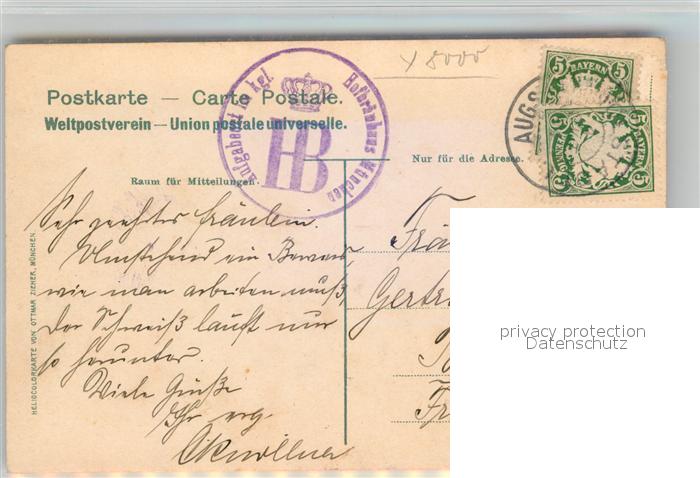 x 8000
Postkarte — Carte Postale.
Weltpostverein — Union postale universelle.
Aufgabeort im kgl. Hofbräuhaus München
HB
5 BAYERN 5
AUGS
5 5
Nur für die Adresse.
Raum für Mitteilungen.
Sehr geehrtes Fräulein.
Umstehend ein Beweis,
wie man arbeiten muß,
der Schweiß läuft nur
so herunter.
Viele Grüße
Ihr erg.
Frä
Gertr
Fr
HELIOCOLORKARTE VON OTTMAR ZIEHER, MÜNCHEN.
privacy protection
Datenschutz